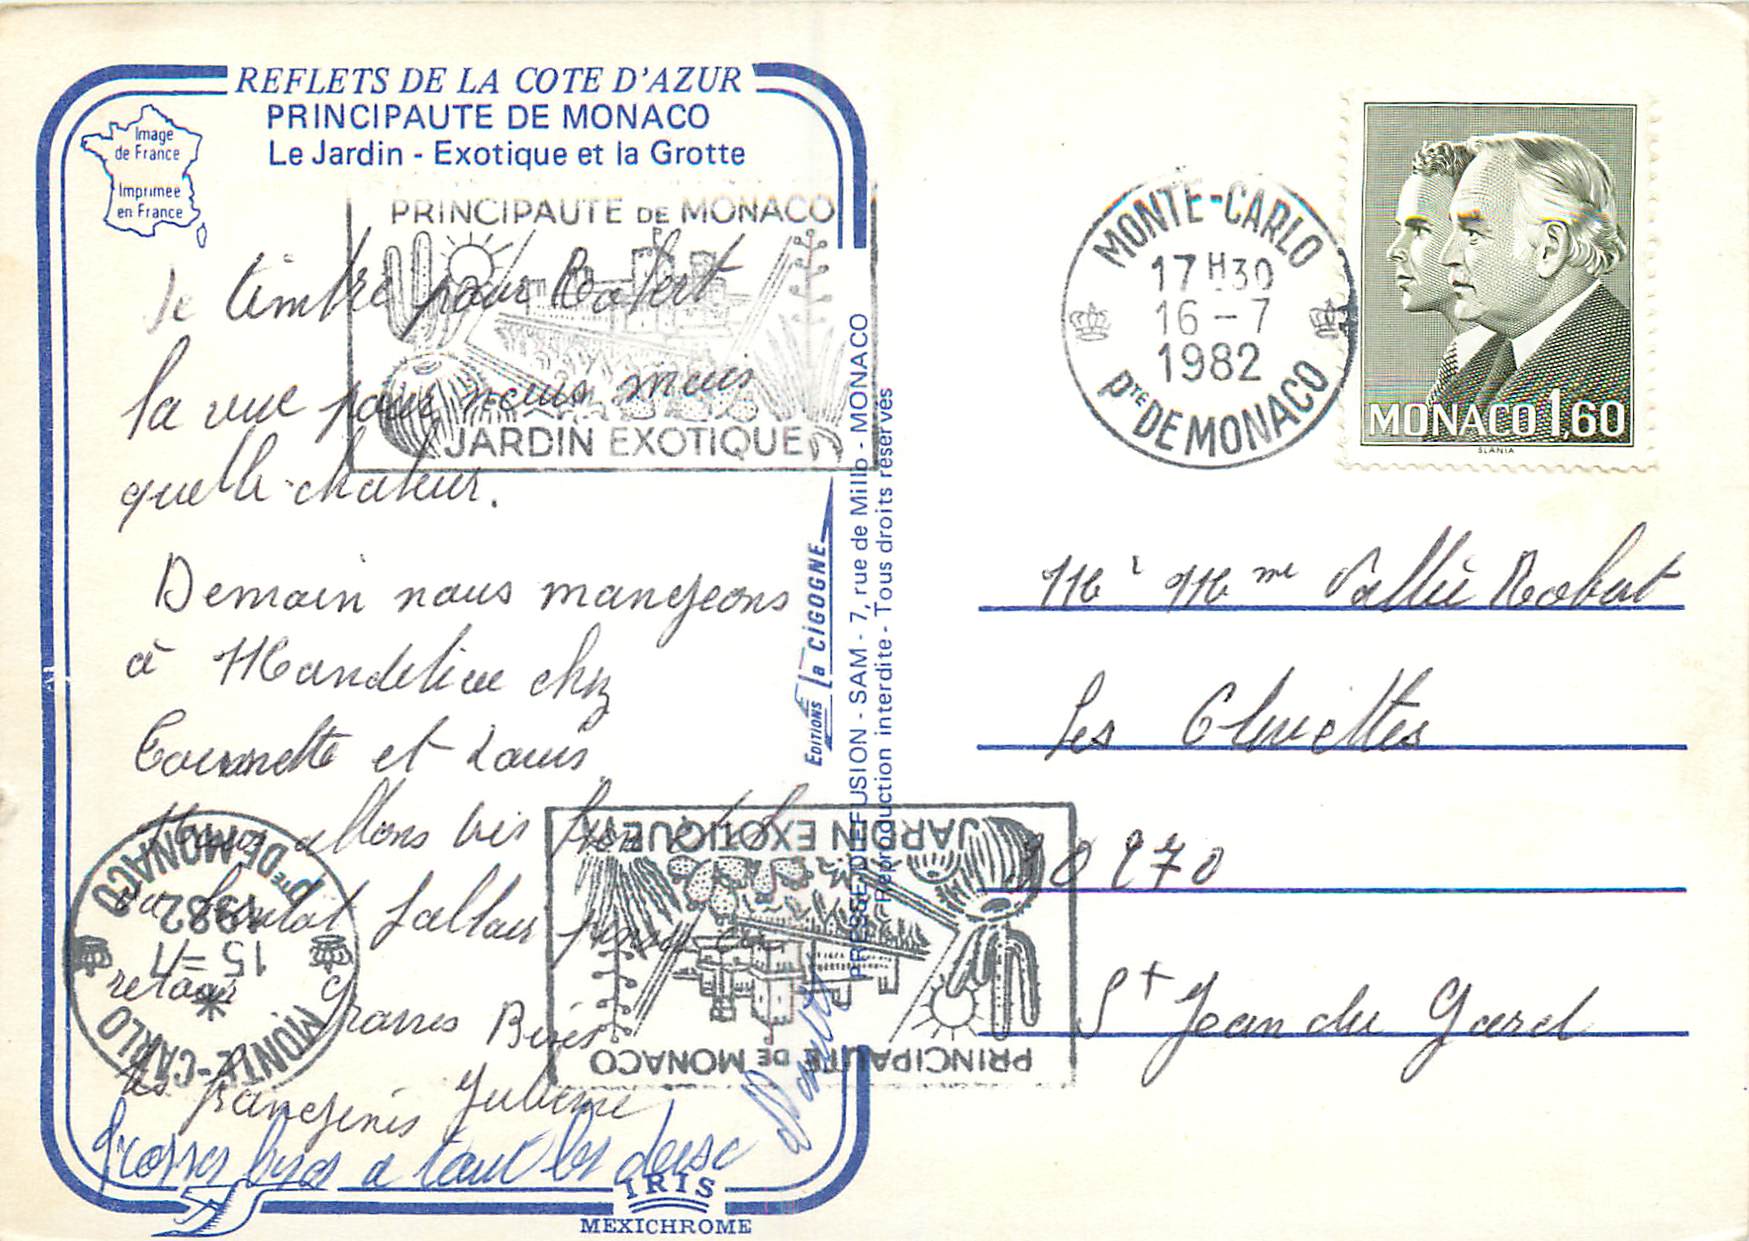 REFLETS DE LA COTE D'AZUR
PRINCIPAUTE DE MONACO
Le Jardin - Exotique et la Grotte
Image
de France
Imprimée
en France
PRINCIPAUTE DE MONACO
JARDIN EXOTIQUE
le timbre pour Robert
la vue pour nous mais
quelle chaleur.
Demain nous mangeons
à Mandelieu chez
et Louis
allons très bien
retour
Grosses Bises
les Julienne
Grosses bises a tous les deux
EDITIONS la CIGOGNE
PRESSE DIFFUSION - SAM - 7, rue de Millo - MONACO
Reproduction interdite - Tous droits réservés
MONTE-CARLO
17H30
16-7
1982
Pté DE MONACO
MONACO 1,60
SLANIA
Mr Mme Vallée Robert
Les
30270
St Jean du Gard
PRINCIPAUTE DE MONACO
JARDIN EXOTIQUE
MONTE-CARLO
15-7
1982
Pté DE MONACO
IRIS
MEXICHROME